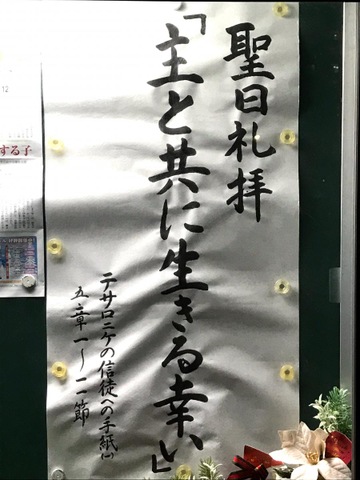 聖日礼拝
「主と共に生きる幸い」
テサロニケの信徒への手紙㈠
五章一～一一節
する子
12